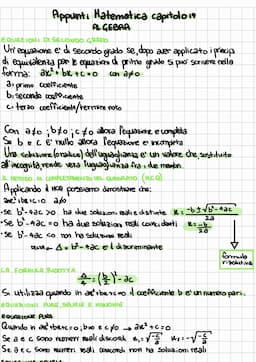 Appunti Matematica capitolo 19
ALGEBRA
EQUAZIONI DI SECONDO GRADO
Un'equazione e' di secondo grado se, dopo aver applicato i principi
di equivalenza per le equazioni di primo grado si può scrivere nella
forma: ax²+bx+c=0 con a≠0
a: primo coefficiente
b: secondo coefficiente
c: terzo coefficiente/termine noto
Con a≠0; b≠0; c≠0 allora l'equazione e completa
Se b e c e' nullo allora l'equazione e' incompleta
Una soluzione (o radice) dell'uguaglianza e' un valore che, sostituito
all'incognita, rende vera l'uguaglianza fra i due membri.
IL METODO DI COMPLETAMENTO DEL QUADRATO (MCQ)
Applicando il MCQ possiamo dimostrare che:
ax²+bx+c=0 a≠0
•se b²-4ac>0 ha due soluzioni reali e distinte x=-b±√b²-4ac/2a
•se b²-4ac=0 ha due soluzioni reali coincidenti x=-b/2a
•se b²-4ac<0 non ha soluzioni reali
Δ=b²-4ac e' il discriminante
formula
risolutiva
LA FORMULA RIDOTTA
Δ/4=(b/2)²-ac
Si utilizza quando in ax²+bx+c=0 il coefficiente b e' un numero pari.
EQUAZIONI PURE, SPURIE E MONOMIE
EQUAZIONI PURE
Quando in ax²+bx+c=0; b=0 e c≠0 → ax²+c=0
Se a e c sono numeri reali discordi x₁=√-c/a x₂=-√-c/a
Se a e c sono numeri reali concordi non ha soluzioni reali